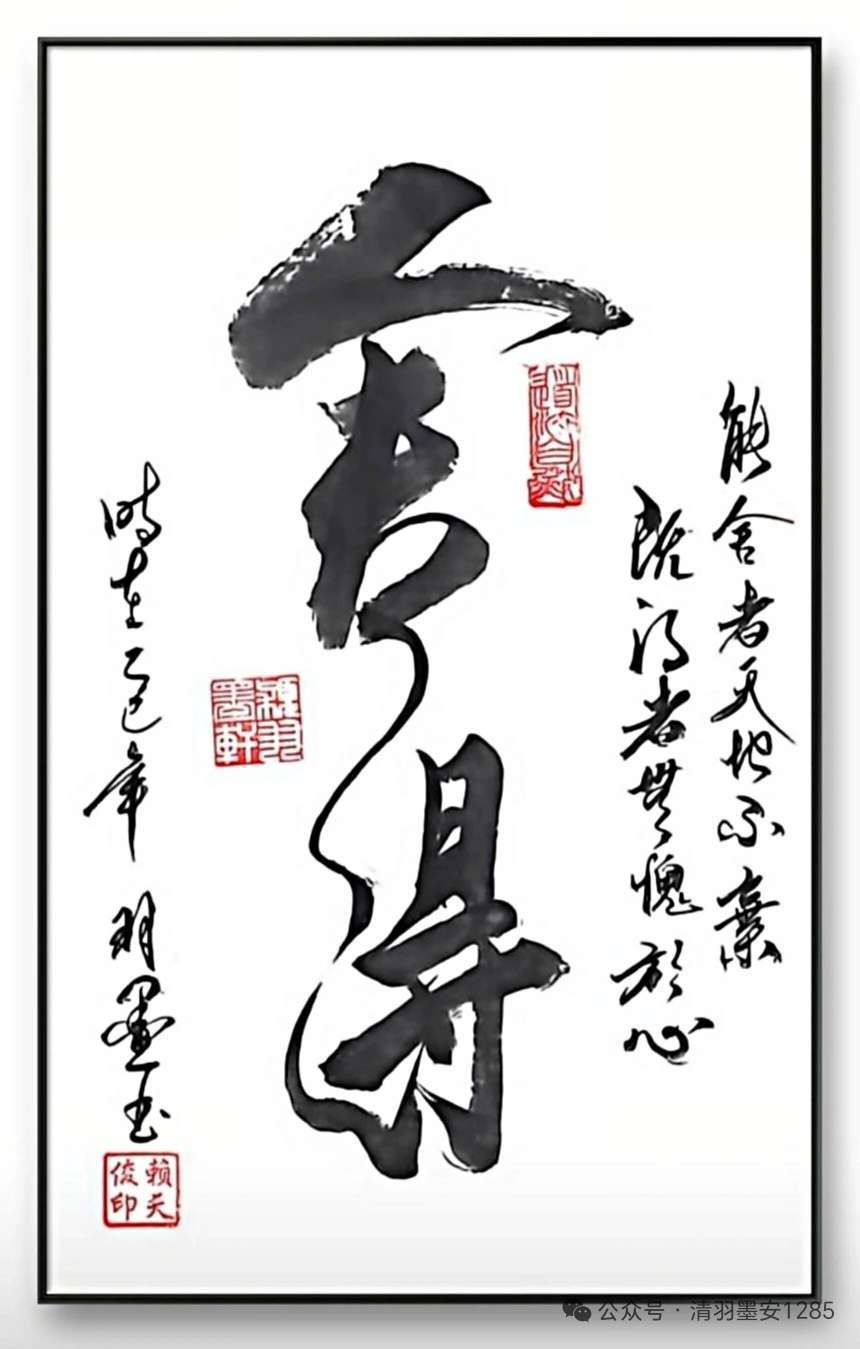 能舍者天地不棄
既得者無愧於心
道法自然
舍得
時在乙巳年 羽墨书
賴天
俊印
公众号·清羽墨安1285